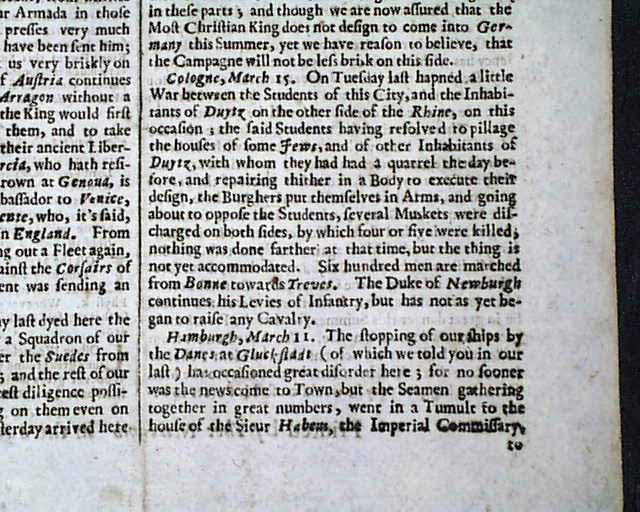 ur Armada in those
presses very much
have been sent him;
us very briskly on
f Austria continues
Arragon without a
the King would first
them, and to take
their ancient Liber-
rcia, who hath resi-
rown at Genoua, is
bassador to Venice,
ente, who, it's said,
n England. From
ng out a Fleet again,
ainst the Corsairs of
ent was sending an
ay last dyed here the
a Squadron of our
er the Suedes from
; and the rest of our
rest diligence possi-
g on them even on
sterday arrived here
in these parts; and though we are now assured that the
Most Christian King does not design to come into Ger-
many this Summer, yet we have reason to believe, that
the Campagne will not be less brisk on this side.
Cologne, March 15. On Tuesday last hapned a little
War between the Students of this City, and the Inhabi-
tants of Duytz on the other side of the Rhine, on this
occasion; the said Students having resolved to pillage
the houses of some Jews, and of other Inhabitants of
Duytz, with whom they had had a quarrel the day be-
fore, and repairing thither in a Body to execute their
design, the Burghers put themselves in Arms, and going
about to oppose the Students, several Muskets were dis-
charged on both sides, by which four or five were killed;
nothing was done farther at that time, but the thing is
not yet accommodated. Six hundred men are marched
from Bonne towards Treves. The Duke of Newburgh
continues his Levies of Infantry, but has not as yet be-
gan to raise any Cavalry.
Hamburgh, March 11. The stopping of our ships by
the Danes at Gluckstadt (of which we told you in our
last) has occasioned great disorder here; for no sooner
was the news come to Town, but the Seamen gathering
together in great numbers, went in a Tumult to the
house of the Sieur Habem, the Imperial Commissary,
to